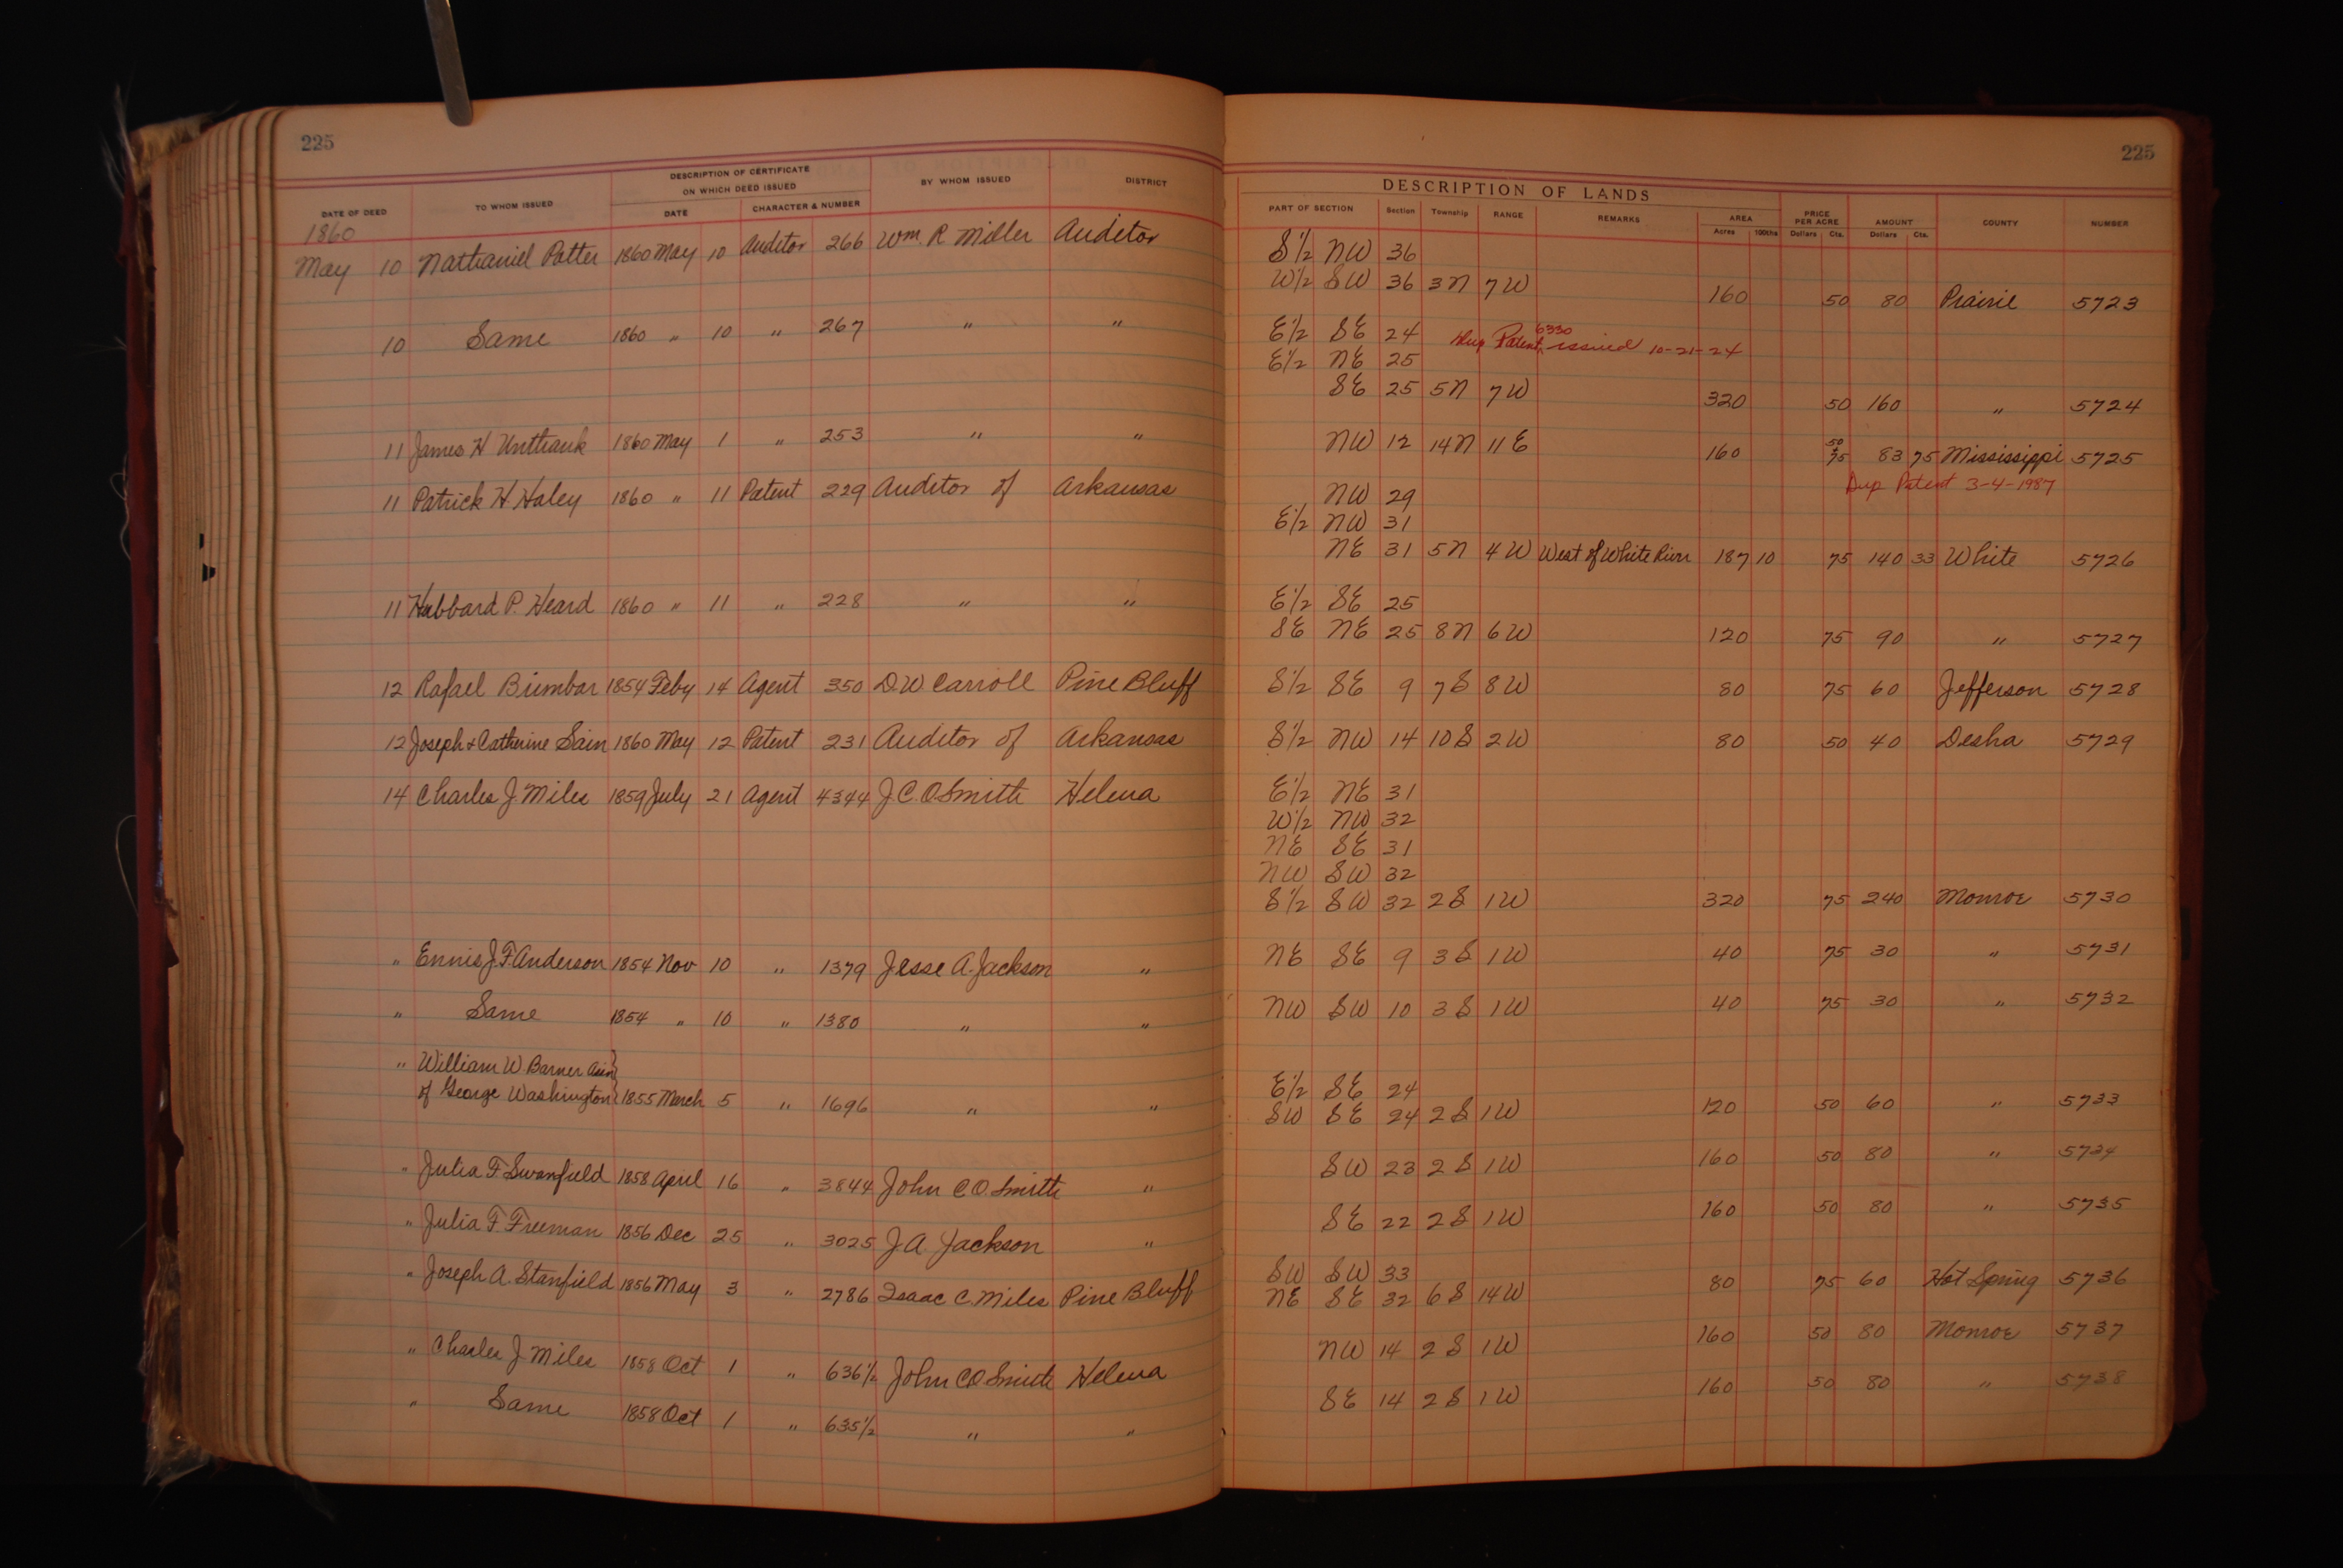 225
DATE OF DEED TO WHOM ISSUED DESCRIPTION OF CERTIFICATE ON WHICH DEED ISSUED DATE CHARACTER & NUMBER BY WHOM ISSUED DISTRICT
1860
May 10 Nathaniel Potter 1860 May 10 Auditor 266 Wm. R Miller Auditor
10 Same 1860 " 10 " 267 " "
11 James H Unthank 1860 May 1 " 253 " "
11 Patrick H Haley 1860 " 11 Patent 229 Auditor of Arkansas
11 Hubbard P. Heard 1860 " 11 " 228 " "
12 Rafael Brumbar 1854 Feby 14 Agent 350 D.W Carroll Pine Bluff
12 Joseph & Catherine Sain 1860 May 12 Patent 231 Auditor of Arkansas
14 Charles J. Miles 1859 July 21 Agent 4344 J.C.O. Smith Helena
" Ennis J. F. Anderson 1854 Nov 10 " 1379 Jesse A. Jackson "
" Same 1854 " 10 " 1380 " "
" William W. Barner Assn
of George Washington 1855 March 5 " 1696 " "
" Julia F. Swanfield 1858 April 16 " 3844 John C O. Smith "
" Julia F. Freeman 1856 Dec 25 " 3025 J.A. Jackson "
" Joseph A. Stanfield 1856 May 3 " 2786 Isaac C. Miles Pine Bluff
" Charles J Miles 1858 Oct 1 " 636 1/2 John C O Smith Helena
" Same 1858 Oct 1 " 635 1/2 " "
225
DESCRIPTION OF LANDS
PART OF SECTION Section Township RANGE REMARKS AREA Acres 100ths PRICE PER ACRE Dollars Cts. AMOUNT Dollars Cts. COUNTY NUMBER
S 1/2 NW 36
W 1/2 SW 36 3N 7W 160 50 80 Prairie 5723
E 1/2 SE 24 Dup Patent 6330 issued 10-21-24
E 1/2 NE 25
SE 25 5N 7W 320 50 160 " 5724
NW 12 14N 11E 160 50 75 83 75 Mississippi 5725
Dup Patent 3-4-1987
NW 29
E 1/2 NW 31
NE 31 5N 4W West of White River 187 10 75 140 33 White 5726
E 1/2 SE 25
SE NE 25 8N 6W 120 75 90 " 5727
S 1/2 SE 9 7S 8W 80 75 60 Jefferson 5728
S 1/2 NW 14 10S 2W 80 50 40 Desha 5729
E 1/2 NE 31
W 1/2 NW 32
NE SE 31
NW SW 32
S 1/2 SW 32 2S 1W 320 75 240 Monroe 5730
NE SE 9 3S 1W 40 75 30 " 5731
NW SW 10 3S 1W 40 75 30 " 5732
E 1/2 SE 24
SW SE 24 2S 1W 120 50 60 " 5733
SW 23 2S 1W 160 50 80 " 5734
SE 22 2S 1W 160 50 80 " 5735
SW SW 33
NE SE 32 6S 14W 80 75 60 Hot Spring 5736
NW 14 2S 1W 160 50 80 Monroe 5737
SE 14 2S 1W 160 50 80 " 5738